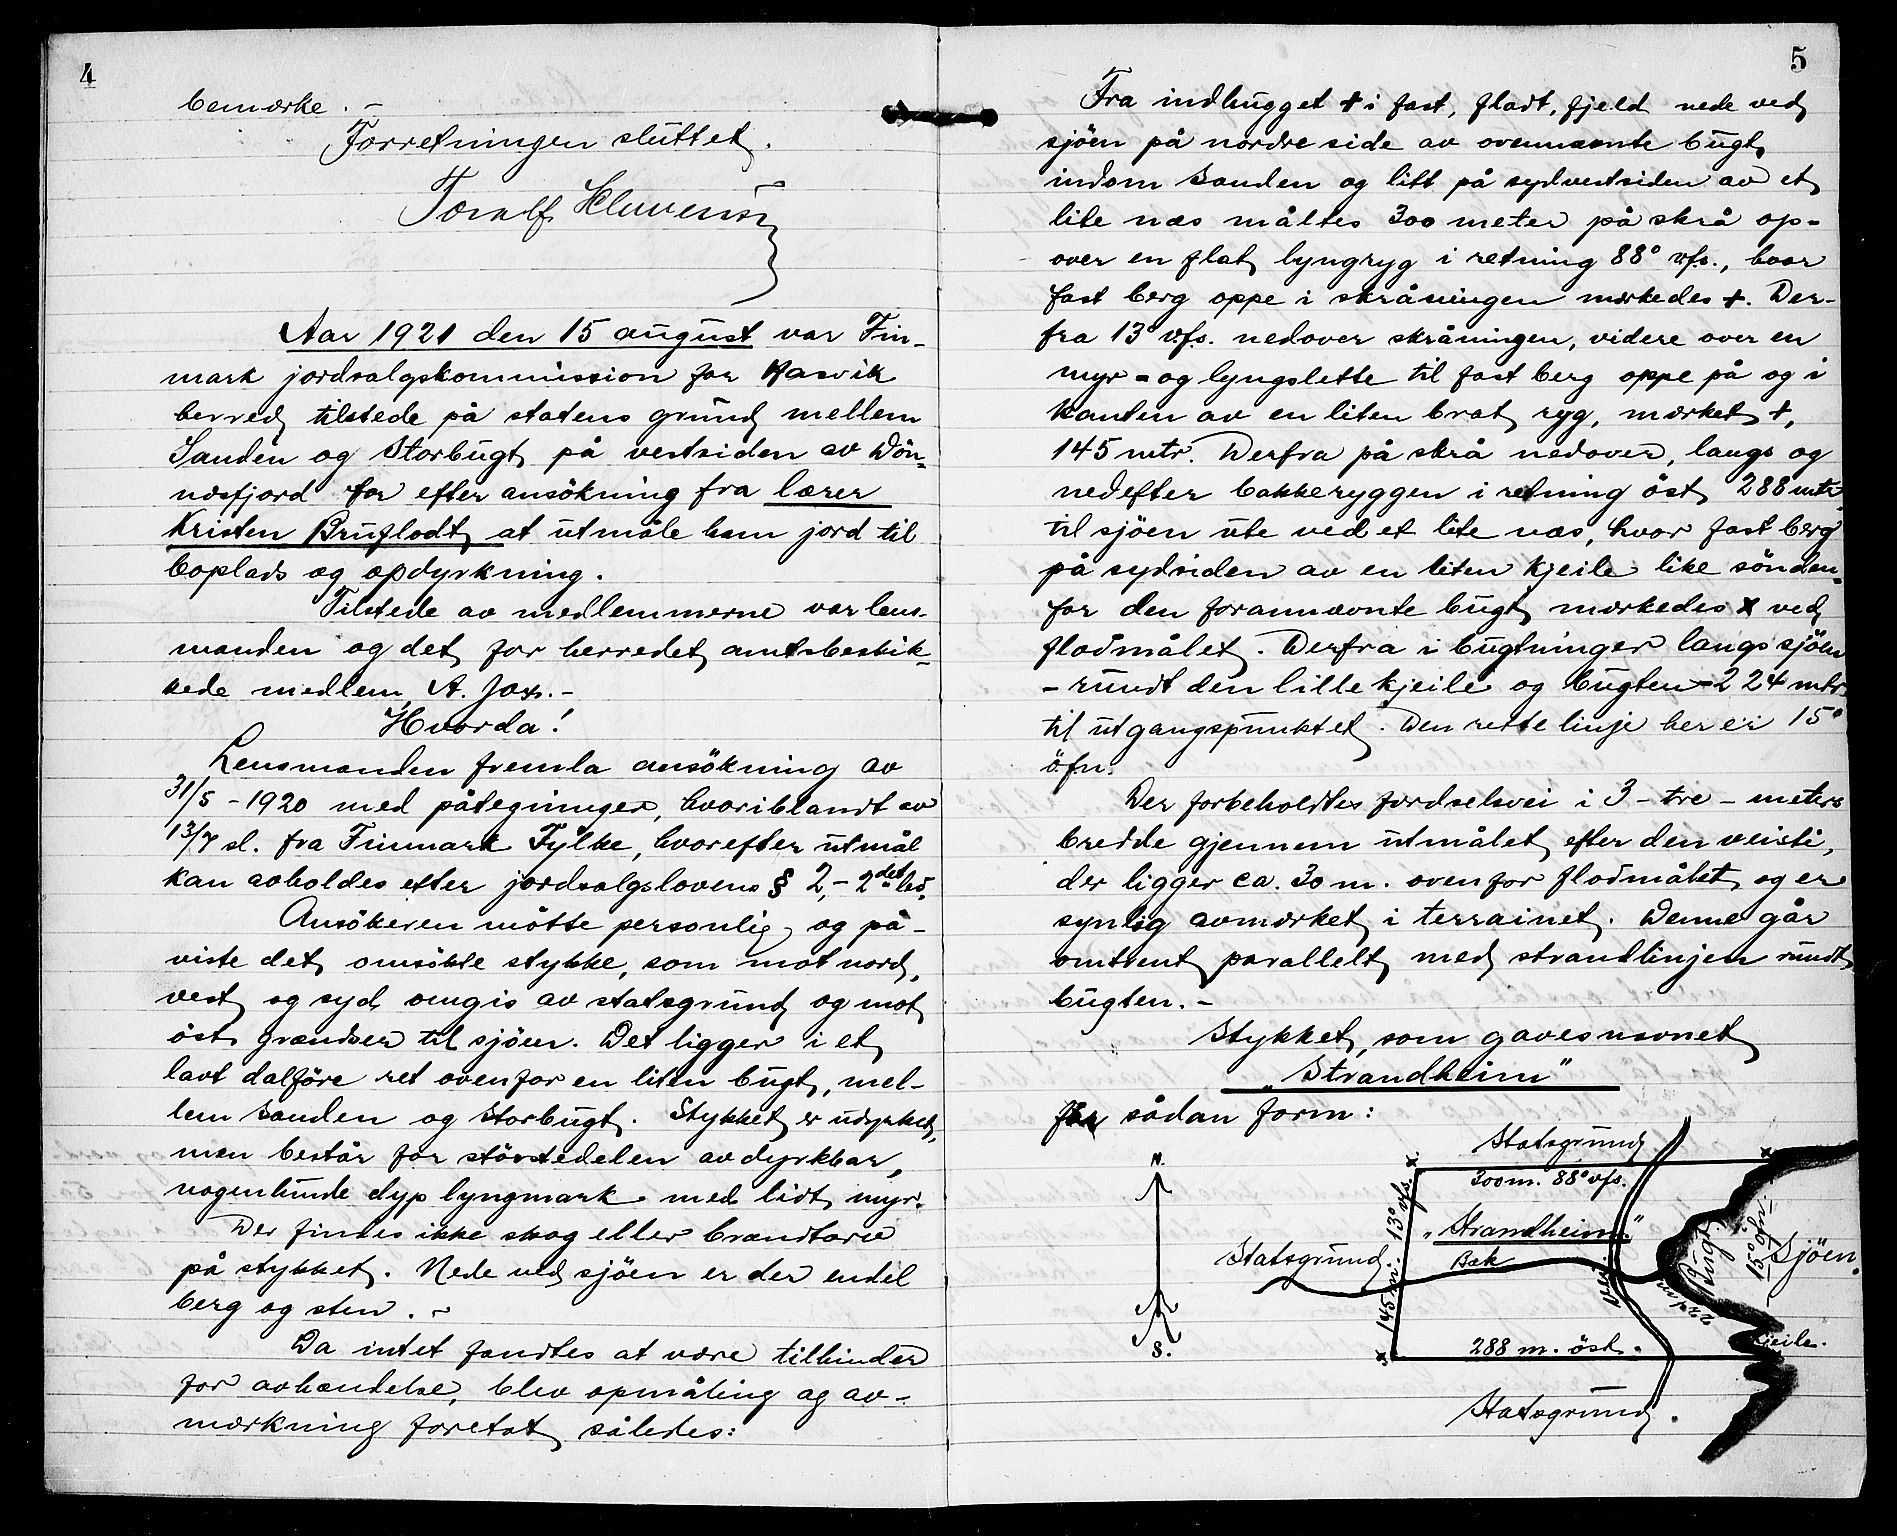 4
bemærke. –
Forretningen sluttet.
Aar 1921 den 15 august var Fin-
mark jordsalgskommission for Hasvik
herred tilstede på statens grund mellem
Sanden og Storbugt på vestsiden av Dön-
næsfjord for efter ansökning fra lærer
Kristen Bruflodt at utmåle ham jord til
boplads og opdyrkning.
Tilstede av medlemmerne var lens-
manden og det for herredet amtsbeskik-
kede medlem A.
Hvorda!
Lensmanden fremla ansökning av
31/5 – 1920 med påtegninger, hvoriblandt av
13/7 sl. fra Finmark Fylke, hvorefter utmål
kan avholdes efter jordsalgslovens § 2, – 2det led.
Ansökeren mötte personlig og på-
viste det omsökte stykke, som mot nord,
vest og syd omgis av statsgrund og mot
öst grændser til sjöen. Det ligger i et
lavt dalföre ret ovenfor en liten bugt, mel-
lem Sanden og Storbugt. Stykket er udyrket,
men består for störstedelen av dyrkbar,
nogenlunde dyp lyngmark med lidt myr.
Der findes ikke skog eller brændtorv
på stykket. Nede ved sjöen er der endel
berg og sten. –
Da intet fandtes at være tilhinder
for avhændelse, blev opmåling og av-
mærkning foretat således:
5
Fra indhugget + i fast, fladt, fjeld nede ved
sjöen på nordre side av ovennævnte bugt,
indom Sanden og litt på sydvestsiden av et
lite næs måltes 300 meter på skrå op-
over en flat lyngryg i retning 88° v.f.s., hvor
fast berg oppe i skråningen mærkedes +. Der-
fra 13° v.f.s. nedover skråningen, videre over en
myr- og lyngslette til fast berg oppe på og i
kanten av en liten brat ryg, mærket +,
145 mtr. Derfra på skrå nedover, langs og
nedefter bakkeryggen i retning öst 288 mtr.
til sjöen ute ved et lite næs, hvor fast berg
på sydsiden av en liten kjeile like sönden-
for den forannævnte bugt mærkedes x ved
flodmålet. Derfra i bugtninger langs sjöen
– rundt den lille kjeile og bugten – 224 mtr.
til utgangspunktet. Den rette linje her er 15°
ö.f.n.
Der forbeholdtes færdselsvei i 3 – tre – meters
bredde gjennem utmålet efter den veisti,
der ligger ca. 30 m. ovenfor flodmålet og er
synlig avmærket i terrainet. Denne går
omtrent parallelt med strandlinjen rundt
bugten. –
Stykket, som gaves navnet
„Strandheim"
får sådan form:
Statsgrund
N.
x
x
300 m. 88° v.f.s.
145 m. 13° v.f.s.
„Strandheim."
Statsgrund.
Bæk
Vei
Bugt
224 m.
15° ö.f.n.
Sjöen.
S.
x
288 m. öst.
Kjeile.
Statsgrund.